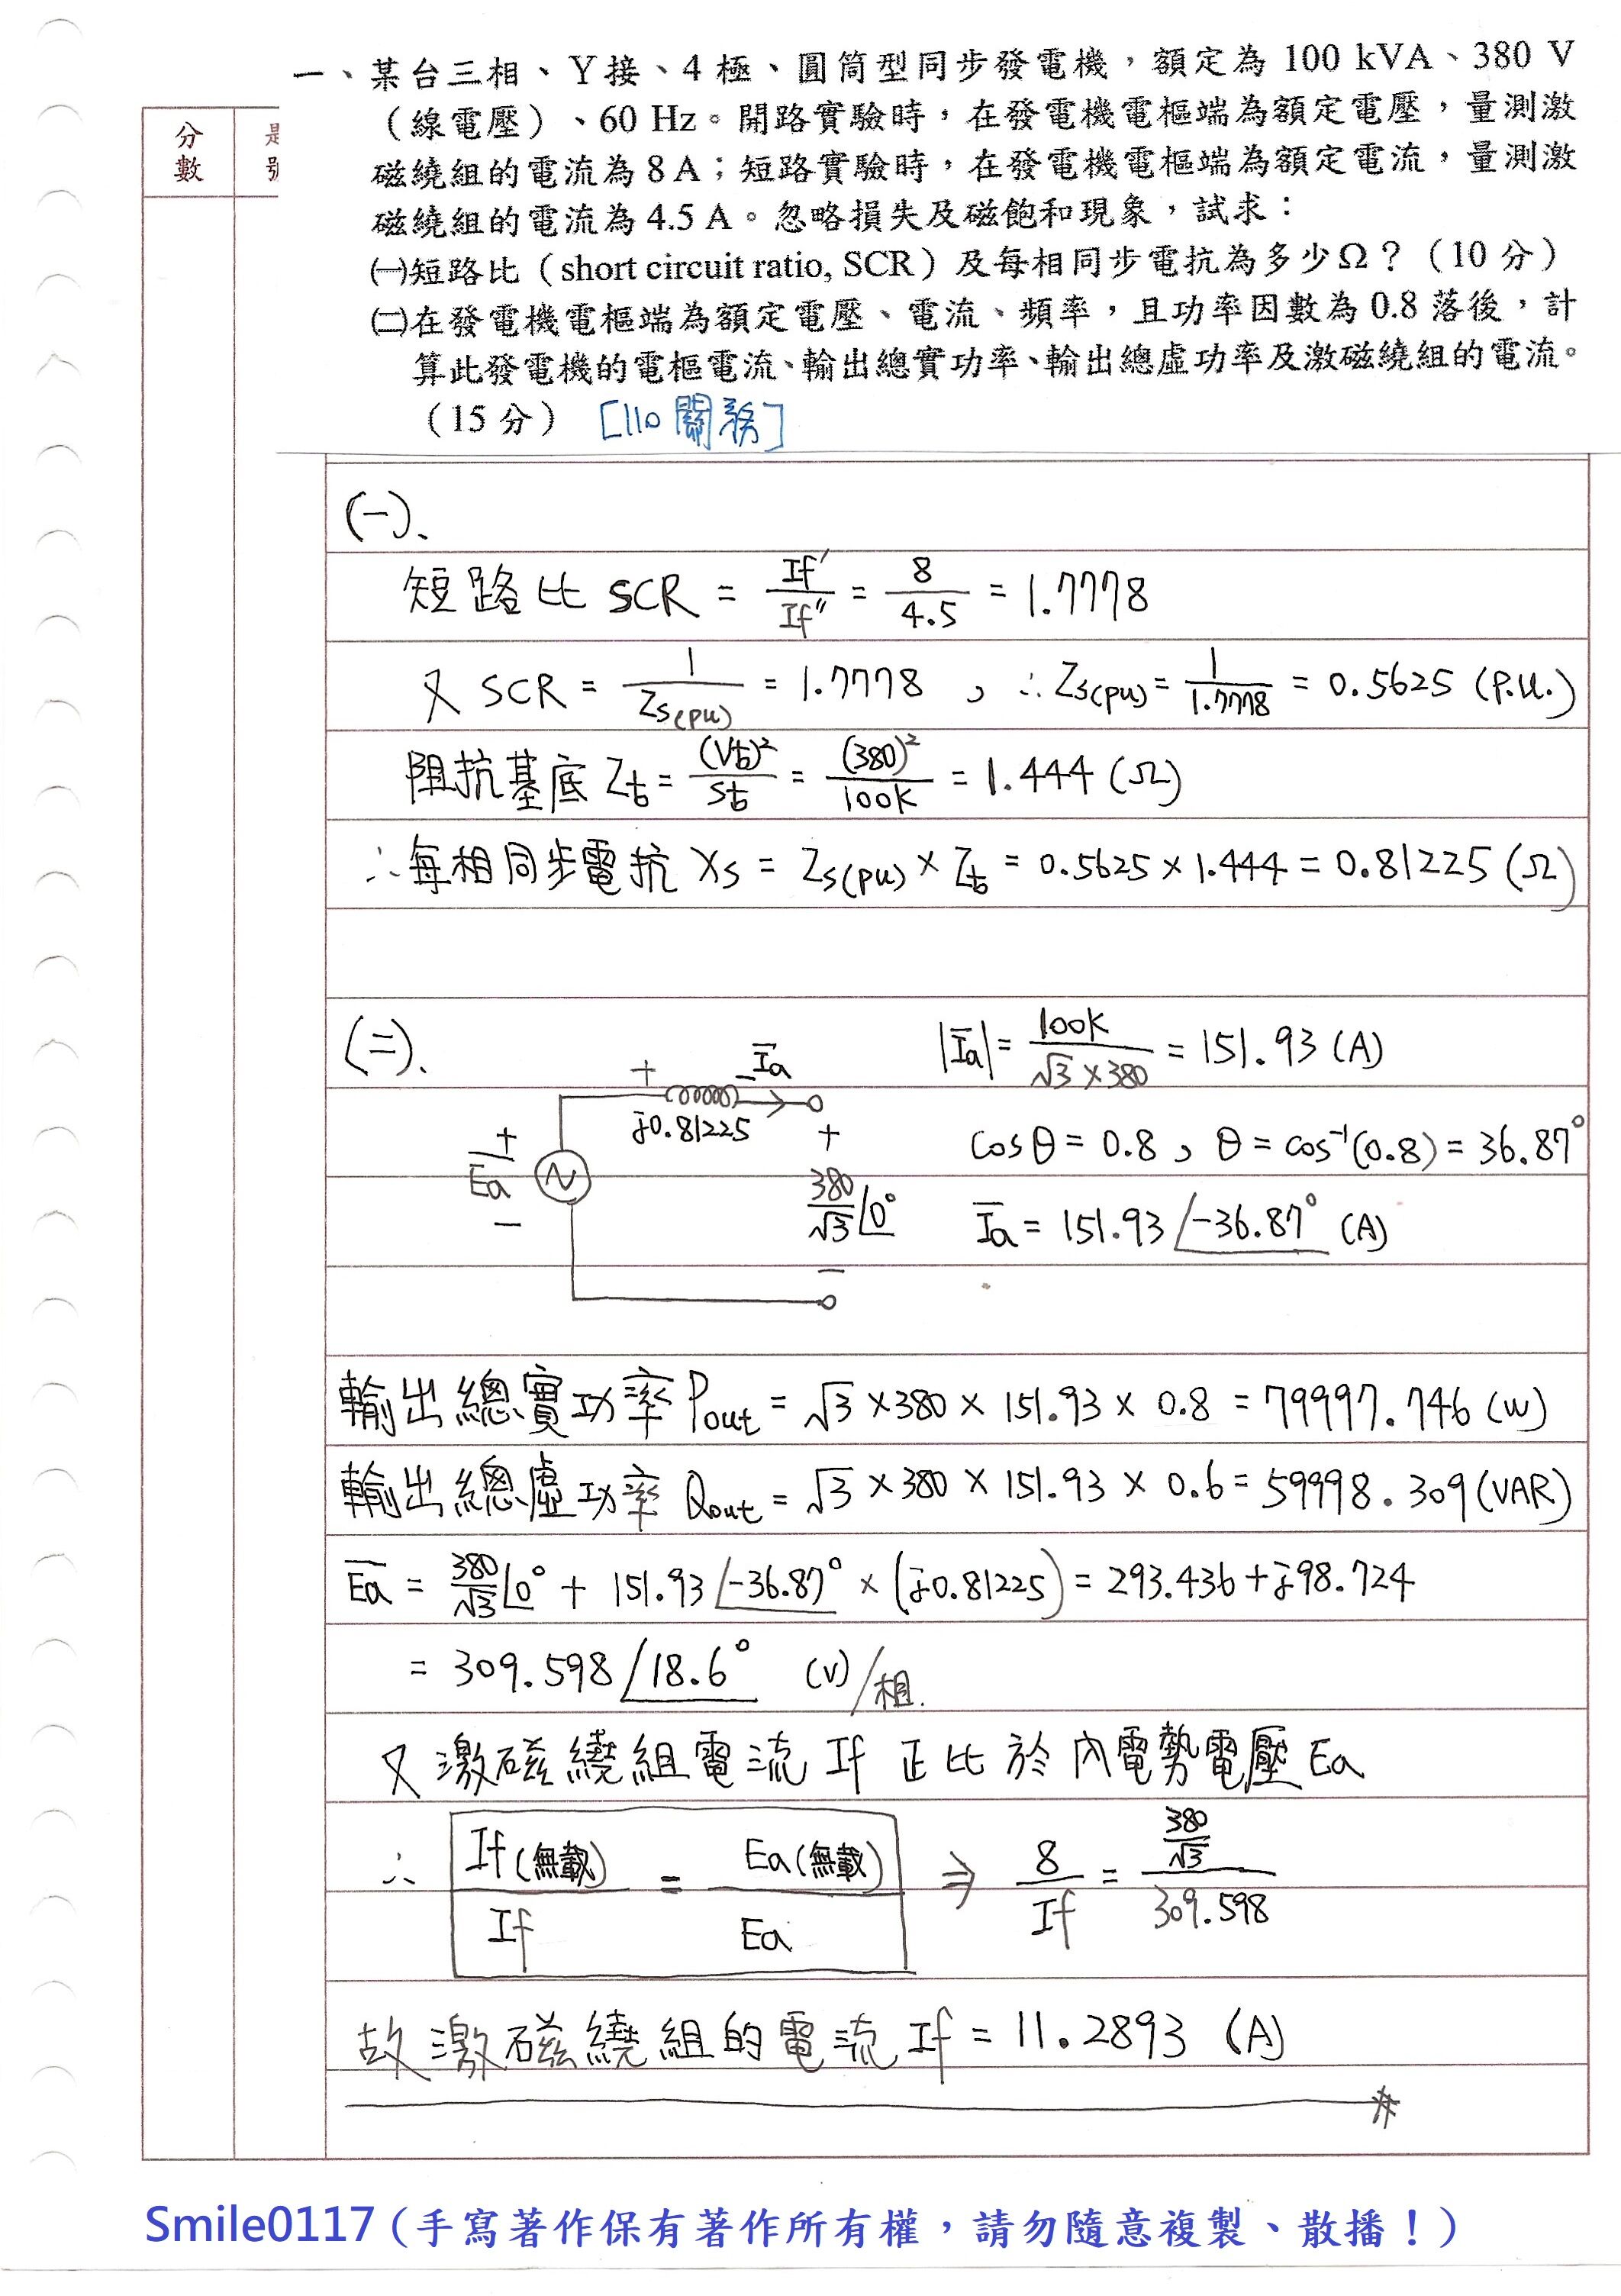 一、某台三相、Y接、4極、圓筒型同步發電機，額定為 100 kVA、380 V
（線電壓）、60 Hz。開路實驗時，在發電機電樞端為額定電壓，量測激
磁繞組的電流為 8 A；短路實驗時，在發電機電樞端為額定電流，量測激
磁繞組的電流為 4.5 A。忽略損失及磁飽和現象，試求：
㈠短路比（short circuit ratio, SCR）及每相同步電抗為多少Ω？（10 分）
㈡在發電機電樞端為額定電壓、電流、頻率，且功率因數為 0.8 落後，計
算此發電機的電樞電流、輸出總實功率、輸出總虛功率及激磁繞組的電流。
（15 分） [110關務]
分數
(一)、
短路比 SCR = If'/If'' = 8/4.5 = 1.7778
又 SCR = 1/Zs(pu) = 1.7778 , ∴ Zs(pu) = 1/1.7778 = 0.5625 (P.u.)
阻抗基底 Zb = (Vb)²/Sb = (380)²/100K = 1.444 (Ω)
∴每相同步電抗 Xs = Zs(pu) × Zb = 0.5625 × 1.444 = 0.81225 (Ω)
(二)、
+ Īa
j0.81225
+ Ēa −
+ 380/√3∠0° −
|Īa| = 100K/√3×380 = 151.93 (A)
cosθ = 0.8 , θ = cos⁻¹(0.8) = 36.87°
Īa = 151.93∠-36.87° (A)
輸出總實功率 Pout = √3 × 380 × 151.93 × 0.8 = 79997.746 (W)
輸出總虛功率 Qout = √3 × 380 × 151.93 × 0.6 = 59998.309 (VAR)
Ēa = 380/√3∠0° + 151.93∠-36.87° × (j0.81225) = 293.436 + j98.724
= 309.598∠18.6° (V)/相.
又激磁繞組電流 If 正比於內電勢電壓 Ea
∴ If(無載)/If = Ea(無載)/Ea ⇒ 8/If = 380/√3/309.598
故激磁繞組的電流 If = 11.2893 (A)
Smile0117（手寫著作保有著作所有權，請勿隨意複製、散播！）